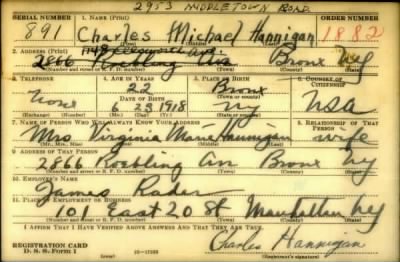 2953 MIDDLETOWN ROAD
SERIAL NUMBER 1. NAME (Print) ORDER NUMBER
891 Charles Michael Hannigan 1882
(First) (Middle) (Last)
2. ADDRESS (Print)
1148 Ave.
2866 Roebling Ave Bronx NY
(Number and street or R. F. D. number) (Town) (County) (State)
3. TELEPHONE 4. AGE IN YEARS 5. PLACE OF BIRTH 6. COUNTRY OF CITIZENSHIP
22 Bronx
None DATE OF BIRTH (Town or county)
6 23 1918 NY USA
(Exchange) (No.) (Mo.) (Day) (Yr.) (State or country)
7. NAME OF PERSON WHO WILL ALWAYS KNOW YOUR ADDRESS 8. RELATIONSHIP OF THAT PERSON
Mrs Virginia Marie Hannigan wife
(Mr., Mrs., Miss) (First) (Middle) (Last)
9. ADDRESS OF THAT PERSON
2866 Roebling Av Bronx NY
(Number and street or R. F. D. number) (Town) (County) (State)
10. EMPLOYER'S NAME
James Rader
11. PLACE OF EMPLOYMENT OR BUSINESS
401 East 20 St Manhattan NY
(Number and street or R. F. D. number) (Town) (County) (State)
I AFFIRM THAT I HAVE VERIFIED ABOVE ANSWERS AND THAT THEY ARE TRUE.
REGISTRATION CARD
D. S. S. Form 1
Charles Hannigan
(Registrant's signature)